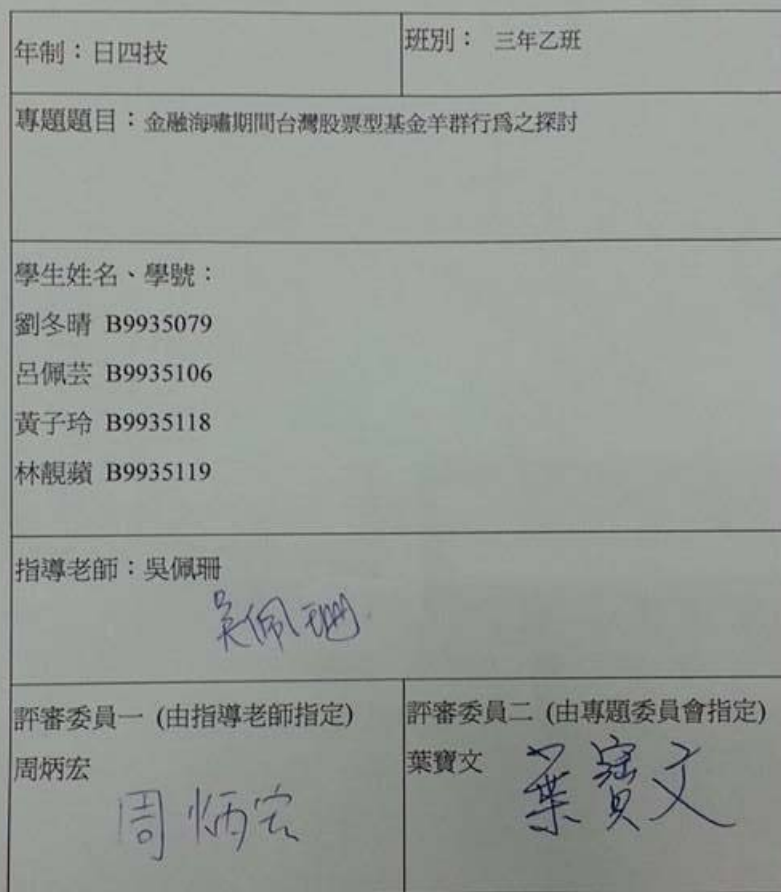 年制：日四技
班別： 三年乙班
專題題目：金融海嘯期間台灣股票型基金羊群行為之探討
學生姓名、學號：
劉冬晴 B9935079
呂佩芸 B9935106
黃子玲 B9935118
林靚蘋 B9935119
指導老師：吳佩珊
吳佩珊
評審委員一 (由指導老師指定)
周炳宏
周炳宏
評審委員二 (由專題委員會指定)
葉寶文
葉寶文